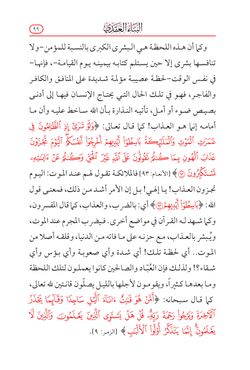 البناء العقدي
٩٩
وكما أن هذه اللحظة هي البشرى الكبرى بالنسبة للمؤمن - ولا
تنافسها بشرى إلا حين يستلم كتابه بيمينه يوم القيامة -، فإنها -
في نفس الوقت - لحظة عصيبة مؤلمة شديدة على المنافق والكافر
والفاجر، فهو في تلك الحال التي يحتاج الإنسان فيها إلى أدنى
بصيص ضوء أو أمل، تأتيه النذارة بأن الله ساخط عليه وأن ما
أمامه إنما هو العذاب! كما قال تعالى: ﴿وَلَوْ تَرَىٰ إِذِ الظَّالِمُونَ فِي
غَمَرَاتِ الْمَوْتِ وَالْمَلَائِكَةُ بَاسِطُو أَيْدِيهِمْ أَخْرِجُوا أَنْفُسَكُمُ الْيَوْمَ تُجْزَوْنَ
عَذَابَ الْهُونِ بِمَا كُنْتُمْ تَقُولُونَ عَلَى اللَّهِ غَيْرَ الْحَقِّ وَكُنْتُمْ عَنْ آيَاتِهِ
تَسْتَكْبِرُونَ﴾ (الأنعام: ٩٣) فالملائكة تقول لهم عند الموت: اليوم
تجزون العذاب! يا إلهي! بل إن الأمر أشد من ذلك، فمعنى قول
الله: ﴿بَاسِطُو أَيْدِيهِمْ﴾ أي: بالضرب، والعذاب، كما قال المفسرون،
وكما شهد له القرآن في مواضع أخرى. فيضرب المجرم عند الموت،
ويُبشر بالعذاب، مع حزنه على ما فاته من الدنيا، وقلقه أصلا من
الموت.. أي لحظة تلك! أي شدة وأي صعوبة وأي بؤس وأي
شقاء؟! ولذلك فإن العُبّاد والصالحين كانوا يعملون لتلك اللحظة
وما بعدها كثيراً، ويقومون لأجلها بالليل يصلّون قانتين لله تعالى،
كما قال سبحانه: ﴿أَمَّنْ هُوَ قَانِتٌ آنَاءَ اللَّيْلِ سَاجِدًا وَقَائِمًا يَحْذَرُ
الْآخِرَةَ وَيَرْجُو رَحْمَةَ رَبِّهِ قُلْ هَلْ يَسْتَوِي الَّذِينَ يَعْلَمُونَ وَالَّذِينَ لَا
يَعْلَمُونَ إِنَّمَا يَتَذَكَّرُ أُولُو الْأَلْبَابِ﴾ (الزمر: ٩).